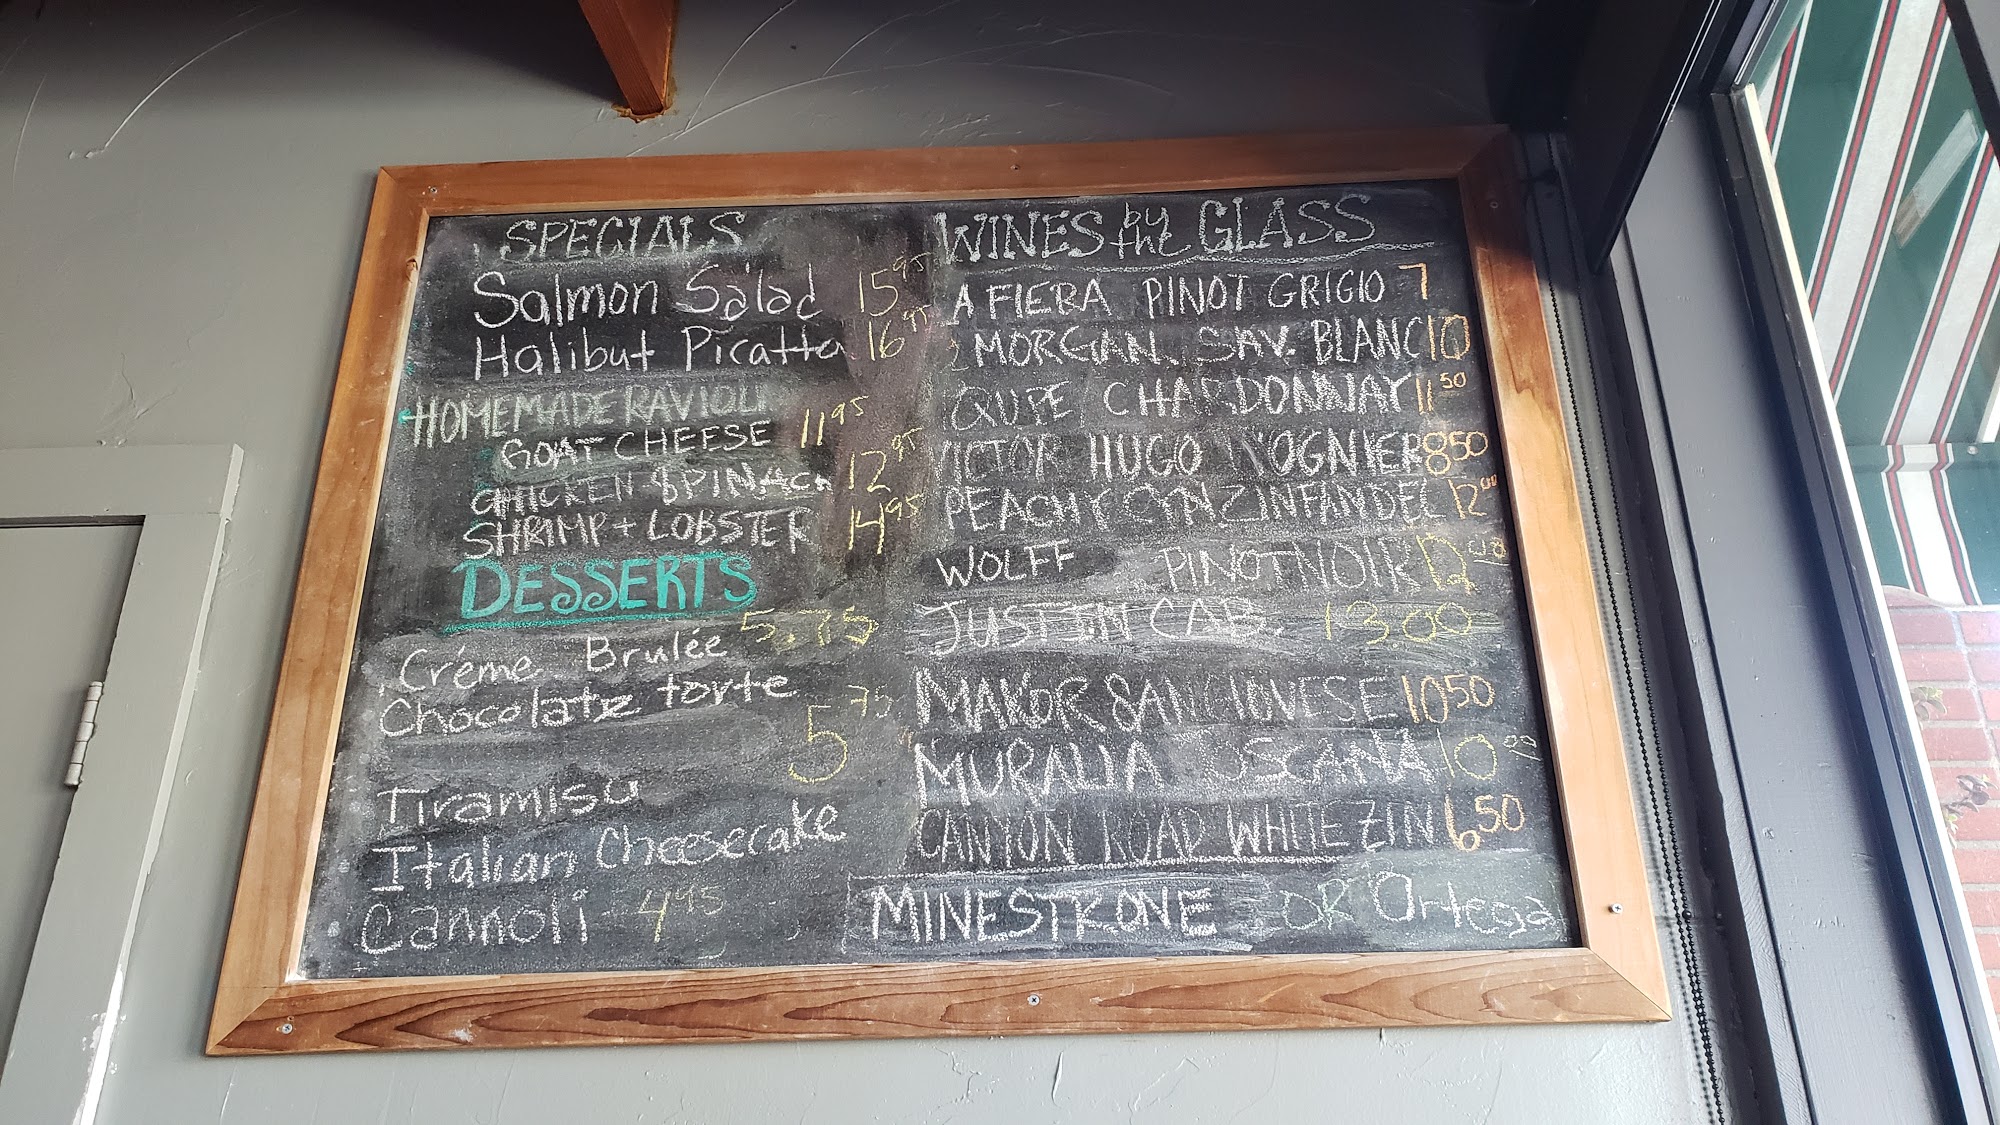 SPECIALS
Salmon Salad 15.95
Halibut Picatta 16.95
HOMEMADE RAVIOLI
GOAT CHEESE 11.95
CHICKEN & SPINACH 12.95
SHRIMP + LOBSTER 14.95
DESSERTS
Créme Brulée 5.75
Chocolate torte
5.75
Tiramisu
Italian Cheesecake
Cannoli 4.95
WINES by the GLASS
A FIERA PINOT GRIGIO 7
MORGAN SAV. BLANC 10
QUPE CHARDONNAY 11.50
VICTOR HUGO VIOGNIER 8.50
PEACHY CYN ZINFANDEL 12.00
WOLFF PINOT NOIR 12.00
JUSTIN CAB. 13.00
MAKOR SANGIOVESE 10.50
MURALIA TOSCANA 10.00
CANYON ROAD WHITE ZIN 6.50
MINESTRONE OR Ortega